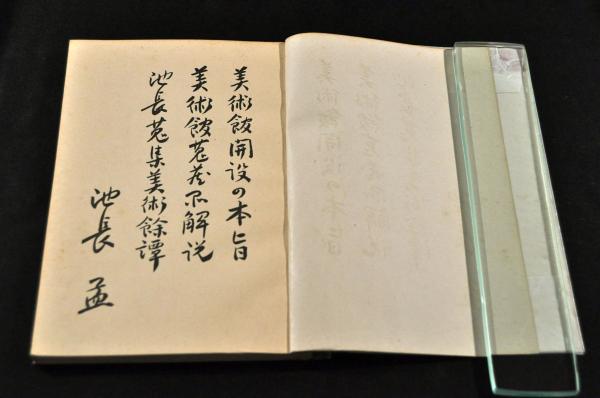 美術館開設の本旨
美術館蒐蔵品解説
池長蒐集美術餘譚
池長 孟